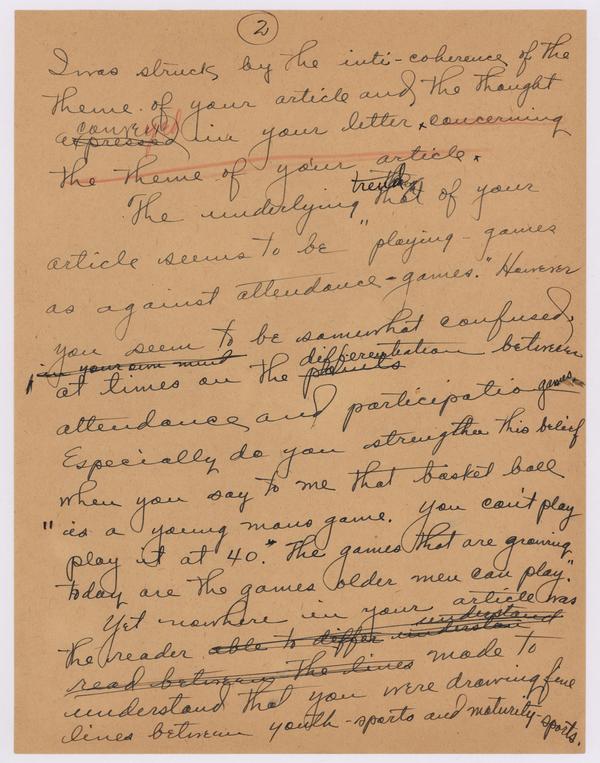 2
I was struck by the inti-coherence of the
theme of your article and the thought
conveyed
expressed in your letter concerning
the theme of your article.
trend
The underlying that of your
article seems to be "playing-games
as against attendance-games." However
you seem to be somewhat confused,
in your own mind differentiation between
at times on the points
attendance and participation games.
Especially do you strengthen this belief
when you say to me that basket ball
"is a young mans game. You can't play
play it at 40." The games that are growing
today are the games older men can play."
Yet nowhere in your article was
understand
the reader able to differ understan
read between the lines made to
understand that you were drawing fine
lines between youth-sports and maturity-sports.